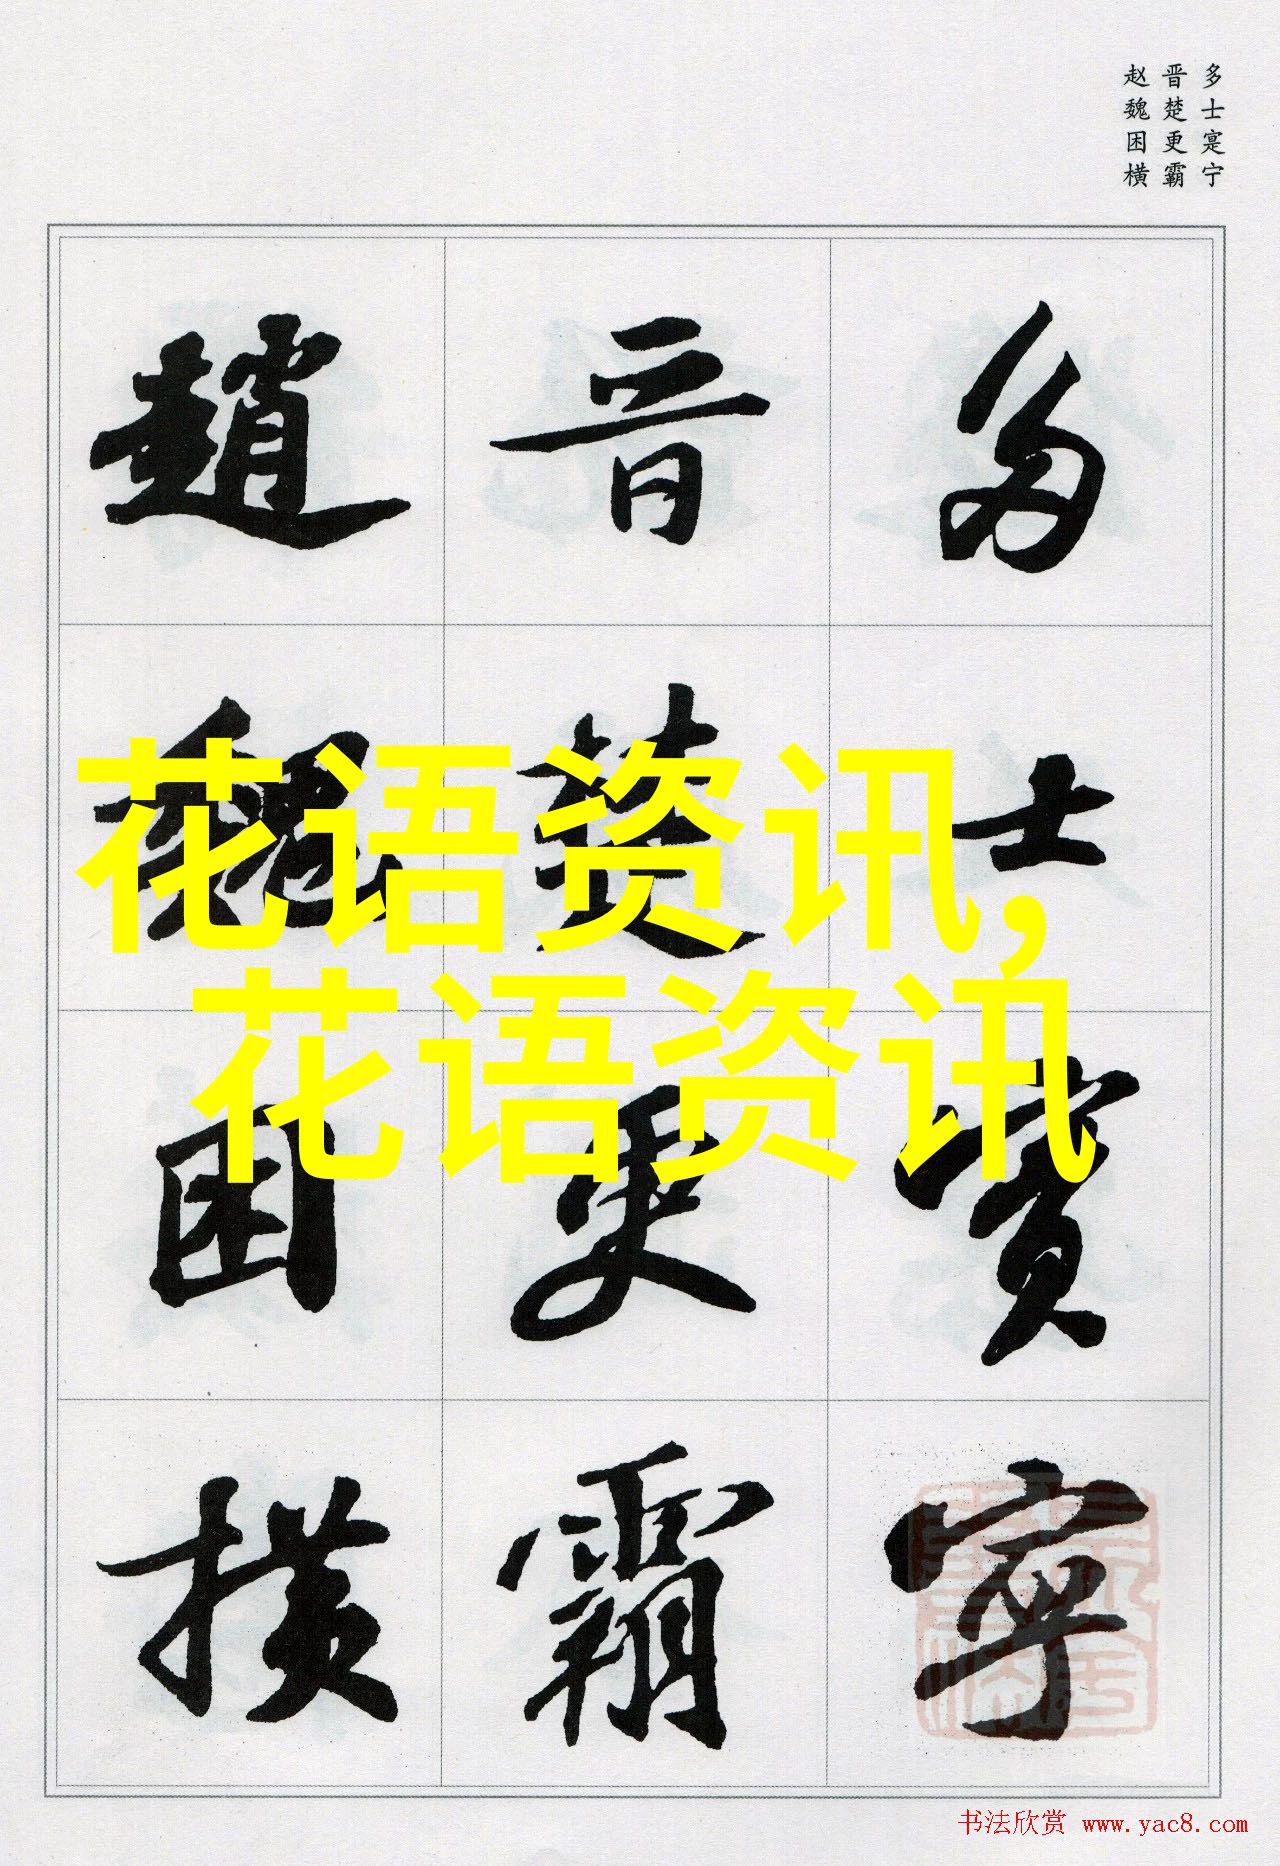 多士寔宁
晋楚更霸
赵魏困横
多士寔寧
晋楚更霸
趙魏困横
花语资讯,
花语资讯
书法欣赏 www.yac8.com